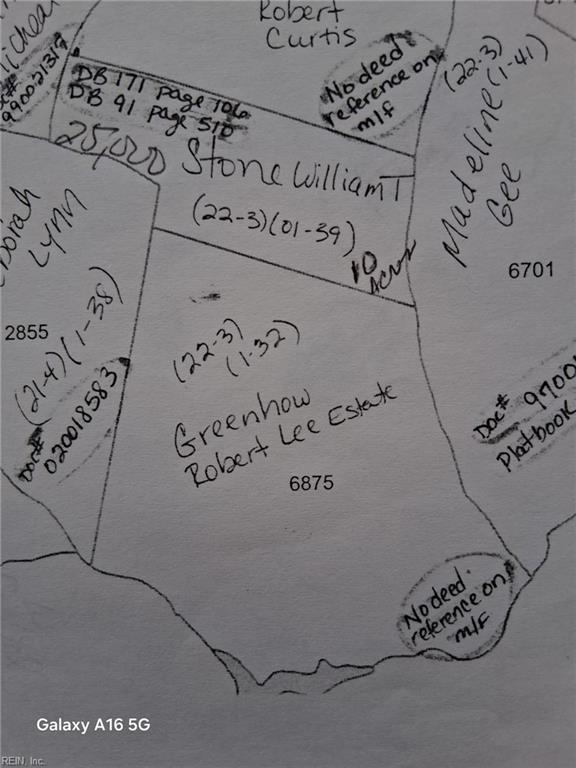 Robert
Curtis
No deed
reference on
m/f
(22-3)
(1-41)
Madeline
Gee
Doc#
990021317
DB 171 page 106
DB 91 page 510
25,000
Stone William T
(22-3)(01-39)
10
Acres
6701
Lynn
2855
(21-4)(1-38)
Doc#
020018583
(22-3)
(1-32)
Greenhow
Robert Lee Estate
6875
Doc#
Platbook
No deed
reference on
m/f
Galaxy A16 5G
REIN, Inc.